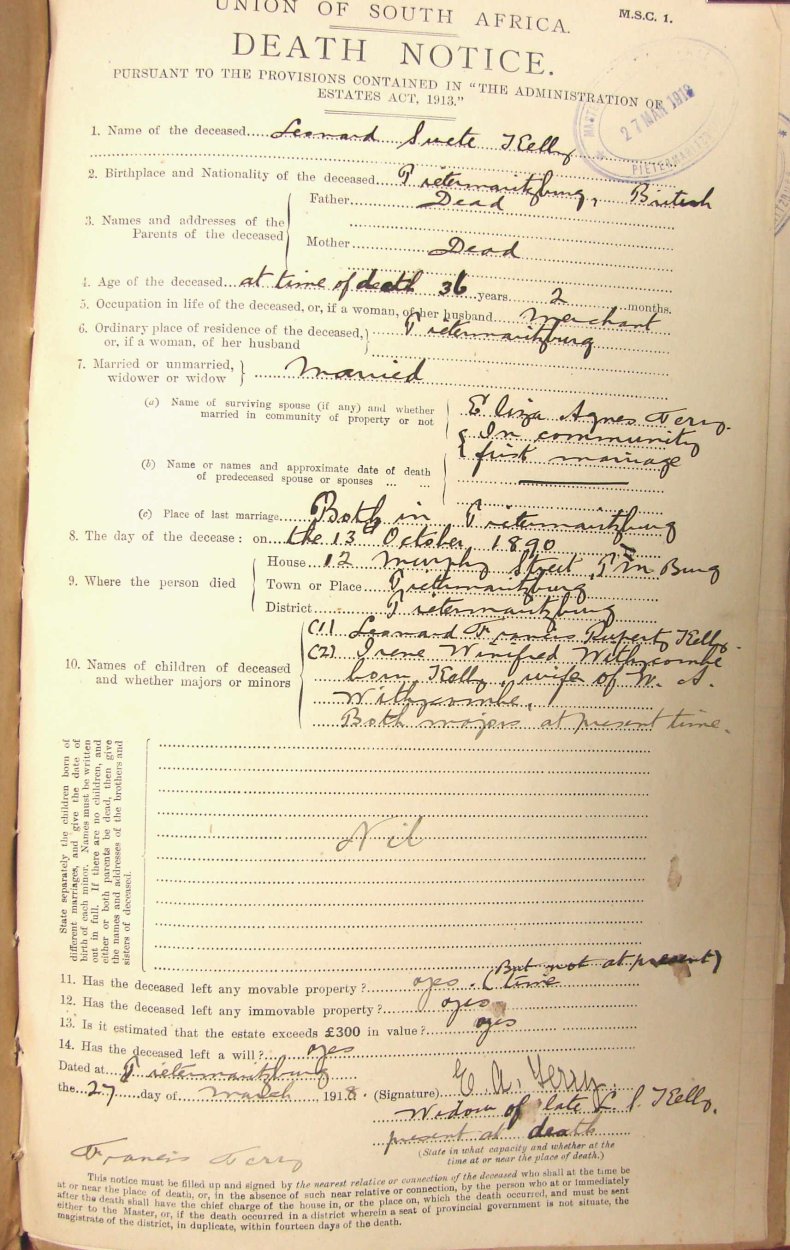 UNION OF SOUTH AFRICA.
M.S.C. 1.
DEATH NOTICE.
PURSUANT TO THE PROVISIONS CONTAINED IN "THE ADMINISTRATION OF
ESTATES ACT, 1913."
27 MAR 1918
1. Name of the deceased Leonard Suete Kelly
2. Birthplace and Nationality of the deceased Pietermaritzburg, British
3. Names and addresses of the Parents of the deceased
Father Dead
Mother Dead
4. Age of the deceased at time of death 36 years 2 months.
5. Occupation in life of the deceased, or, if a woman, of her husband Merchant
6. Ordinary place of residence of the deceased, Pietermaritzburg
or, if a woman, of her husband
7. Married or unmarried,
widower or widow
Married
(a) Name of surviving spouse (if any) and whether
married in community of property or not
Eliza Agnes Terry.
In community
first marriage
(b) Name or names and approximate date of death
of predeceased spouse or spouses ... ...
(c) Place of last marriage Both in Pietermaritzburg
8. The day of the decease: on the 13th October 1890
9. Where the person died
House 12 Murphy Street P M Burg
Town or Place Pietermaritzburg
District Pietermaritzburg
10. Names of children of deceased
and whether majors or minors
(1) Leonard Francis Rupert Kelly.
(2) Irene Winifred Withycombe
born Kelly, wife of W. S.
Withycombe,
Both majors at present time.
State separately the children born of
different marriages, and give the date of
birth of each minor. Names must be written
out in full. If there are no children, and
either or both parents be dead, then give
the names and addresses of the brothers and
sisters of deceased.
Nil
11. Has the deceased left any movable property? yes. (But not at present)
time
12. Has the deceased left any immovable property? yes
13. Is it estimated that the estate exceeds £300 in value? yes
14. Has the deceased left a will? yes
Dated at Pietermaritzburg
the 27 day of March 1918.
(Signature) E. A. Terry.
Widow of late L. S. Kelly.
present at death
(State in what capacity and whether at the
time at or near the place of death.)
Francis Terry
This notice must be filled up and signed by the nearest relative or connection of the deceased who shall at the time be
at or near the place of death, or, in the absence of such near relative or connection, by the person who at or immediately
after the death shall have the chief charge of the house in, or the place on, which the death occurred, and must be sent
either to the Master, or, if the death occurred in a district wherein a seat of provincial government is not situate, the
magistrate of the district, in duplicate, within fourteen days of the death.